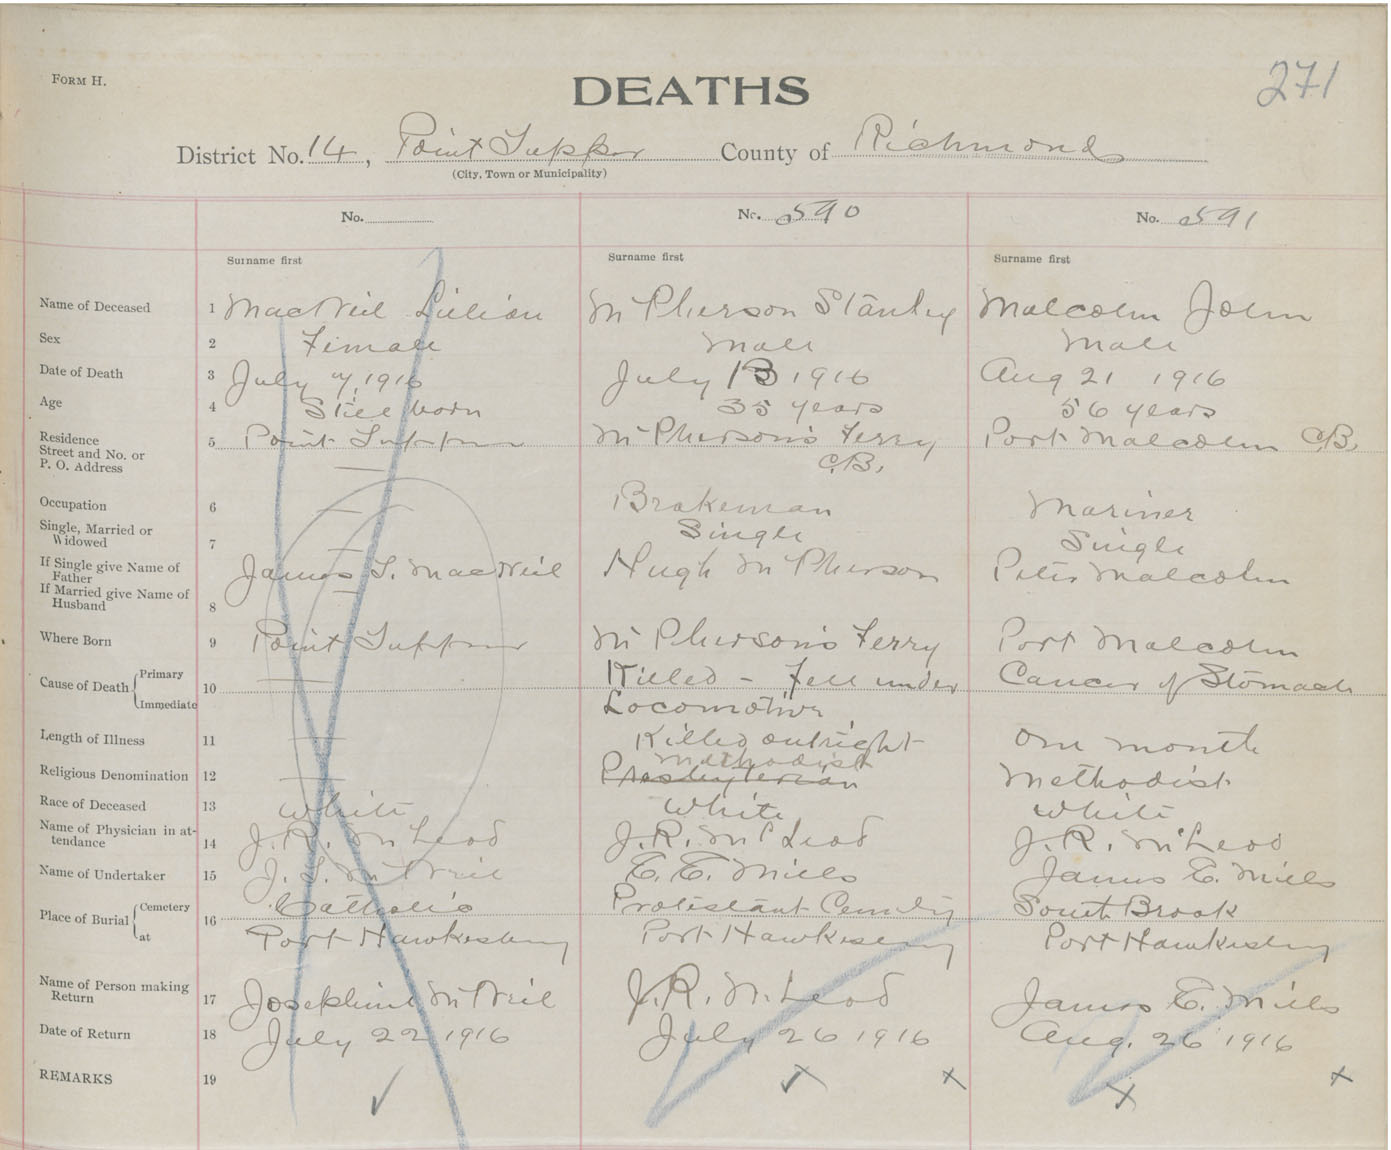 FORM H.
271
DEATHS
District No. 14, Point Tupper County of Richmond
(City, Town or Municipality)
No. No. 590 No. 591
Surname first Surname first Surname first
Name of Deceased 1 MacNeil Lilian McPherson Stanley Malcolm John
Sex 2 Female Male Male
Date of Death 3 July 7, 1916 July 13 1916 Aug 21 1916
Age 4 Still born 35 years 56 years
Residence Street and No. or P. O. Address 5 Point Tupper McPherson's Ferry C.B. Port Malcolm C.B.
Occupation 6 Brakeman Mariner
Single, Married or Widowed 7 Single Single
If Single give Name of Father James S. MacNeil Hugh McPherson Peter Malcolm
If Married give Name of Husband 8
Where Born 9 Point Tupper McPherson's Ferry Port Malcolm
Cause of Death Primary Immediate 10 Killed - Fell under Locomotive Cancer of Stomach
Length of Illness 11 Killed outright One month
Religious Denomination 12 Methodist Presbyterian Methodist
Race of Deceased 13 White White White
Name of Physician in attendance 14 J. R. McLeod J. R. McLeod J. R. McLeod
Name of Undertaker 15 J. S. McNeil E. E. Mills James E. Mills
Place of Burial Cemetery 16 Catholic Protestant Cemetery South Brook
at Port Hawkesbury Port Hawkesbury Port Hawkesbury
Name of Person making Return 17 Josephine McNeil J. R. McLeod James E. Mills
Date of Return 18 July 22 1916 July 26 1916 Aug. 26 1916
REMARKS 19